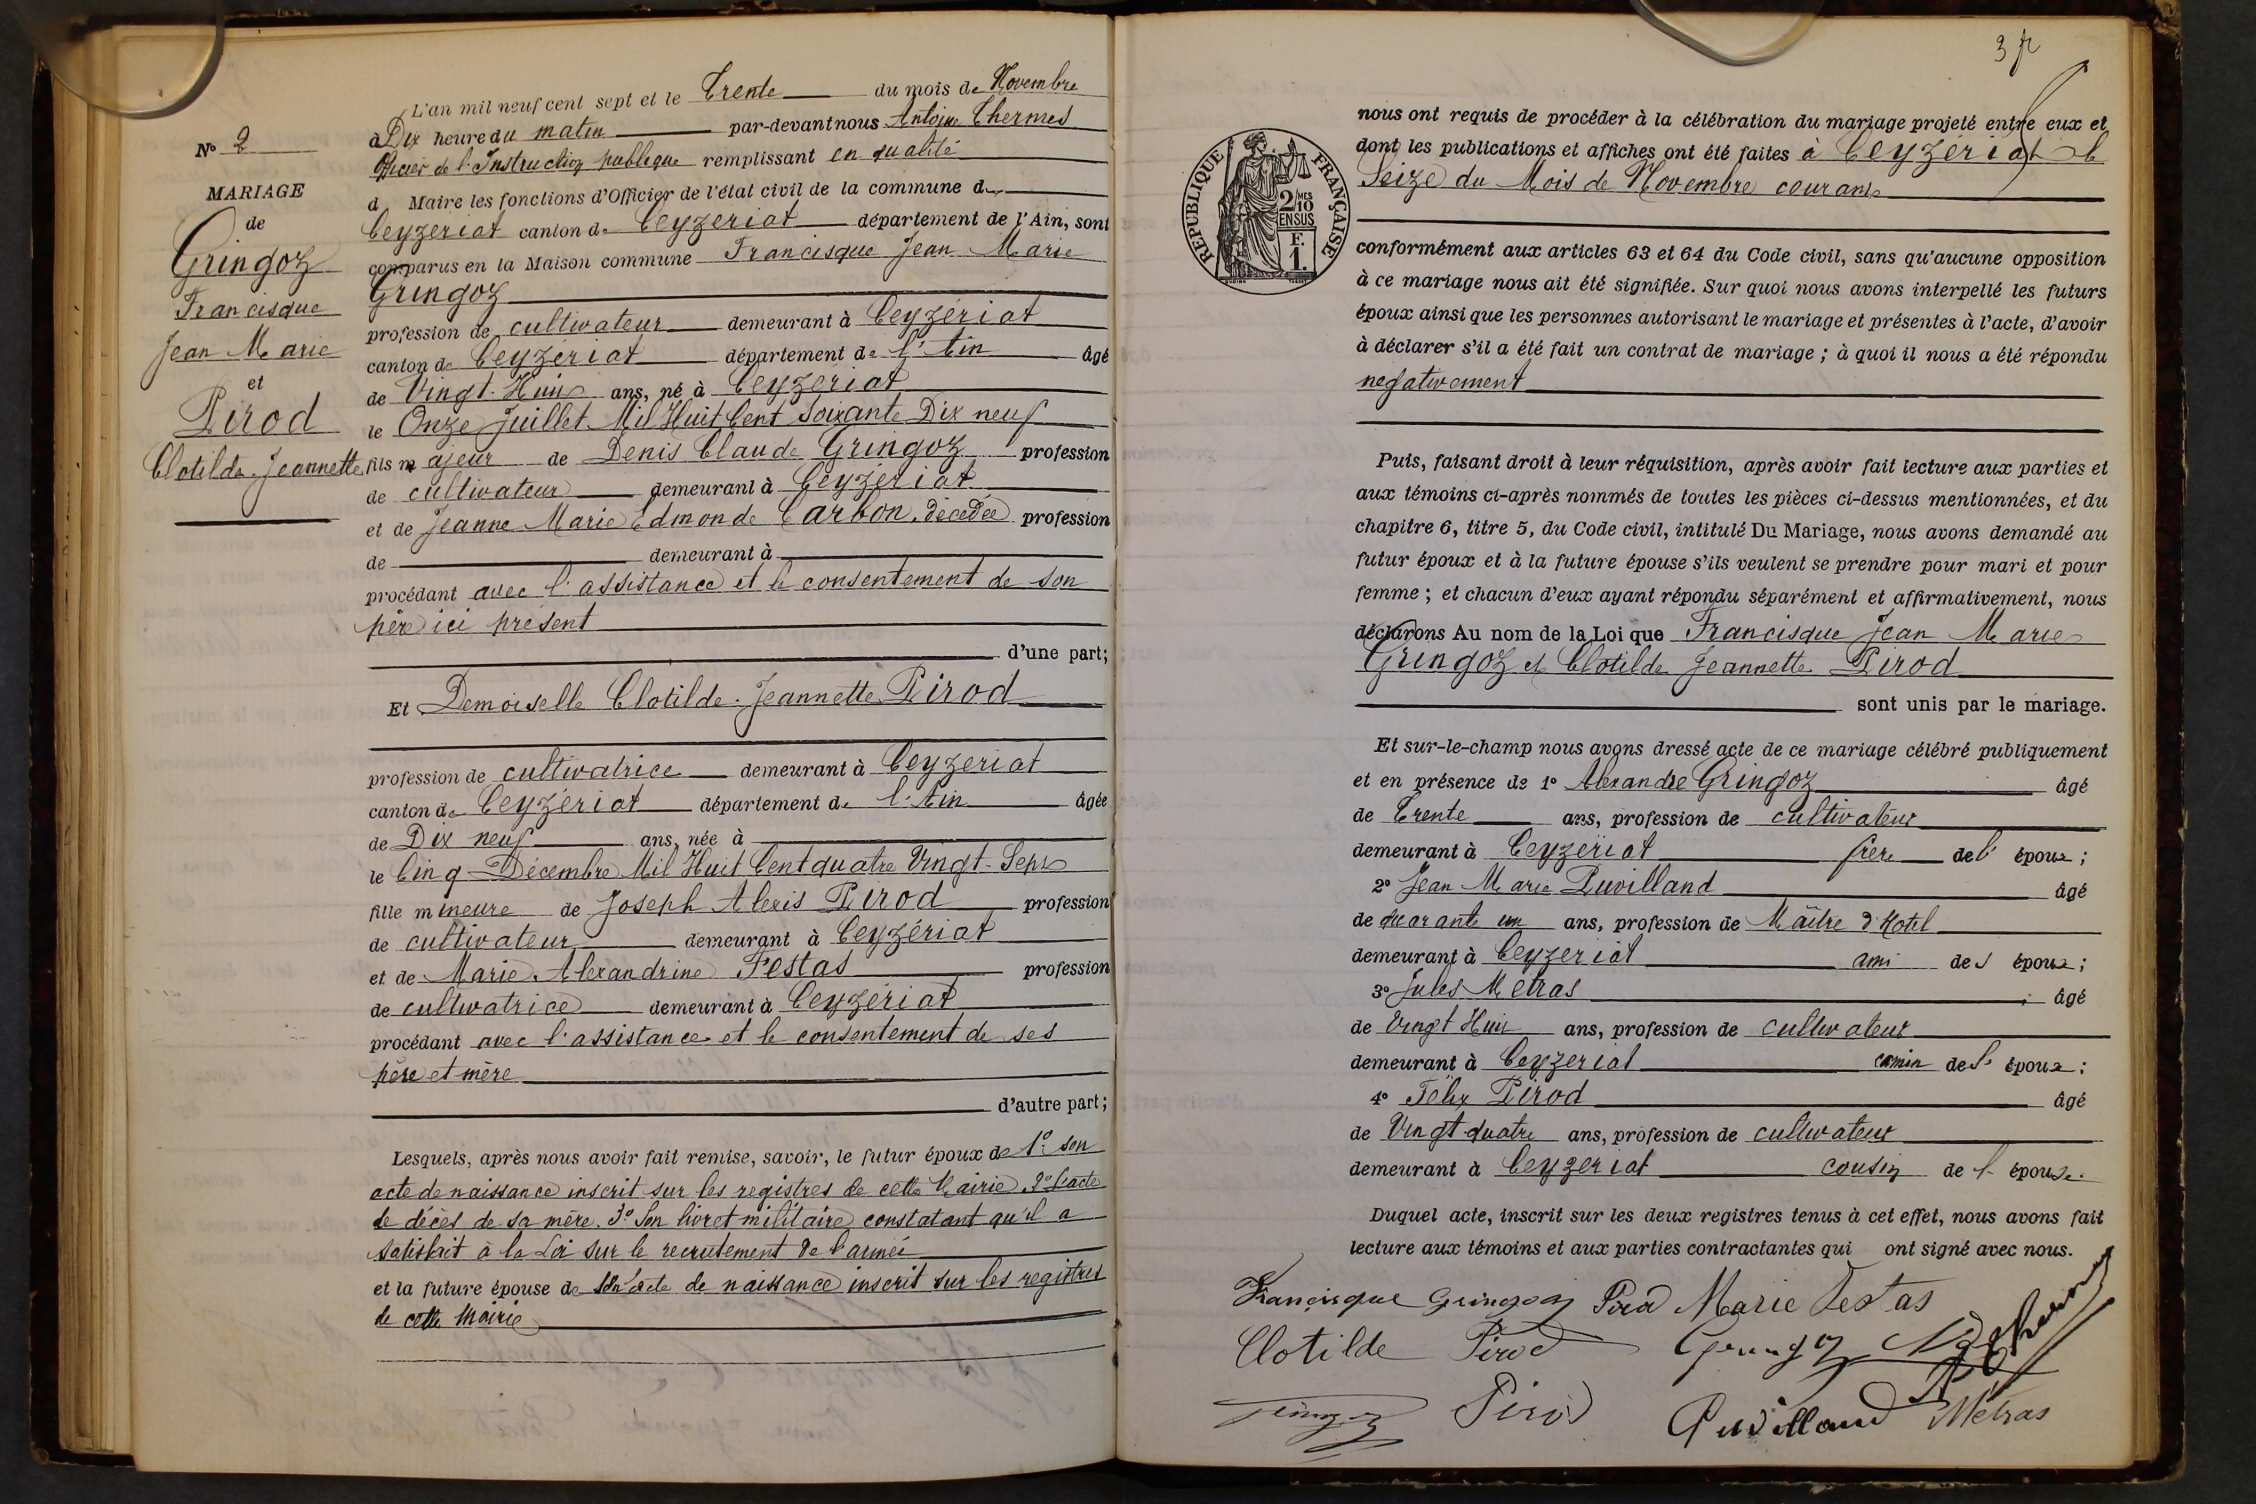 L'an mil neuf cent sept et le Trente du mois de Novembre
à Dix heure du matin par-devant nous Antoine Thermes
Officier de l'Instruction publique remplissant en qualité
d Maire les fonctions d'Officier de l'état civil de la commune de
Ceyzeriat canton de Ceyzeriat département de l'Ain, sont
comparus en la Maison commune Francisque Jean Marie
Gringoz
profession de cultivateur demeurant à Ceyzériat
canton de Ceyzériat département de l'Ain âgé
de Vingt-Huit ans, né à Ceyzériat
le Onze Juillet Mil Huit Cent Soixante Dix neuf
fils majeur de Denis Claude Gringoz profession
de cultivateur demeurant à Ceyzériat
et de Jeanne Marie Edmonde Carbon, décédée profession
de demeurant à
procédant avec l'assistance et le consentement de son
père ici présent
d'une part;
Et Demoiselle Clotilde-Jeannette Pirod
profession de cultivatrice demeurant à Ceyzeriat
canton de Ceyzériat département de l'Ain âgée
de Dix neuf ans, née à
le Cinq Décembre Mil Huit Cent quatre Vingt-Sept
fille mineure de Joseph Alexis Pirod profession
de cultivateur demeurant à Ceyzériat
et de Marie Alexandrine Festas profession
de cultivatrice demeurant à Ceyzériat
procédant avec l'assistance et le consentement de ses
père et mère
d'autre part;
Lesquels, après nous avoir fait remise, savoir, le futur époux de 1° son
acte de naissance inscrit sur les registres de cette Mairie 2° l'acte
de décès de sa mère. 3° Son livret militaire constatant qu'il a
satisfait à la Loi sur le recrutement de l'armée
et la future épouse de son acte de naissance inscrit sur les registres
de cette Mairie
N° 2
MARIAGE
de
Gringoz
Francisque
Jean Marie
et
Pirod
Clotilde-Jeannette
3 f
REPUBLIQUE FRANÇAISE
2/10 MES
EN SUS
F.
1.
nous ont requis de procéder à la célébration du mariage projeté entre eux et
dont les publications et affiches ont été faites à Ceyzeriat le
Seize du Mois de Novembre courant
conformément aux articles 63 et 64 du Code civil, sans qu'aucune opposition
à ce mariage nous ait été signifiée. Sur quoi nous avons interpellé les futurs
époux ainsi que les personnes autorisant le mariage et présentes à l'acte, d'avoir
à déclarer s'il a été fait un contrat de mariage; à quoi il nous a été répondu
negativement
Puis, faisant droit à leur réquisition, après avoir fait lecture aux parties et
aux témoins ci-après nommés de toutes les pièces ci-dessus mentionnées, et du
chapitre 6, titre 5, du Code civil, intitulé Du Mariage, nous avons demandé au
futur époux et à la future épouse s'ils veulent se prendre pour mari et pour
femme; et chacun d'eux ayant répondu séparément et affirmativement, nous
déclarons Au nom de la Loi que Francisque Jean Marie
Gringoz et Clotilde Jeannette Pirod
sont unis par le mariage.
Et sur-le-champ nous avons dressé acte de ce mariage célébré publiquement
et en présence de 1° Alexandre Gringoz âgé
de Trente ans, profession de cultivateur
demeurant à Ceyzeriat frère de l' époux;
2° Jean Marie Puvilland âgé
de quarante un ans, profession de Maître d'Hotel
demeurant à Ceyzeriat ami des époux;
3° Jules Métras âgé
de Vingt Huit ans, profession de cultivateur
demeurant à Ceyzeriat cousin de l' époux;
4° Félix Pirod âgé
de Vingt-quatre ans, profession de cultivateur
demeurant à Ceyzeriat cousin de l' épouse.
Duquel acte, inscrit sur les deux registres tenus à cet effet, nous avons fait
lecture aux témoins et aux parties contractantes qui ont signé avec nous.
Francisque Gringoz Pirod Marie Festas
Clotilde Pirod Gringoz Thermes
Gringoz Pirod Puvilland Métras